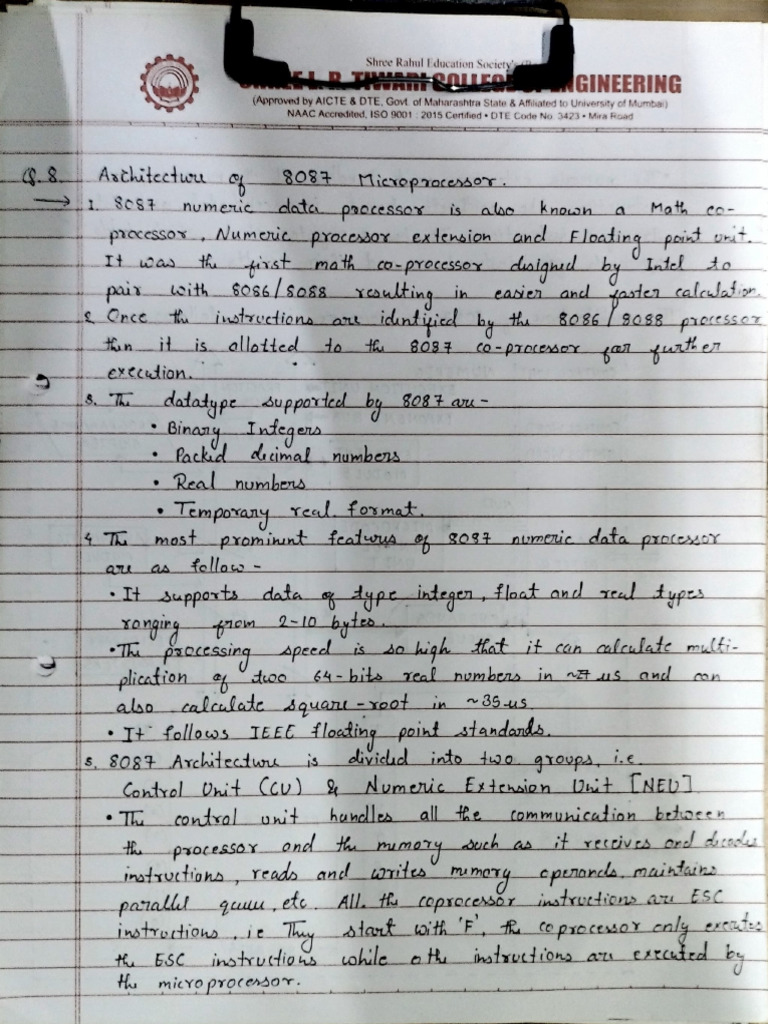 Shree Rahul Education Society's
TIWARI COLLEGE OF ENGINEERING
(Approved by AICTE & DTE, Govt. of Maharashtra State & Affiliated to University of Mumbai)
NAAC Accredited, ISO 9001 : 2015 Certified • DTE Code No. 3423 • Mira Road
Q.8. Architecture of 8087 Microprocessor.
→ 1. 8087 numeric data processor is also known a Math co-
processor, Numeric processor extension and Floating point unit.
It was the first math co-processor designed by Intel to
pair with 8086/8088 resulting in easier and faster calculation.
2. Once the instructions are identified by the 8086/8088 processor
then it is allotted to the 8087 co-processor for further
execution.
3. The datatype supported by 8087 are-
• Binary Integers
• Packed decimal numbers
• Real numbers
• Temporary real format.
4. The most prominent features of 8087 numeric data processor
are as follow -
• It supports data of type integer, float and real types
ranging from 2-10 bytes.
• The processing speed is so high that it can calculate multi-
plication of two 64-bits real numbers in ~27 us and can
also calculate square-root in ~35 us.
• It follows IEEE floating point standards.
5. 8087 Architecture is divided into two groups, i.e.
Control Unit (CU) & Numeric Extension Unit [NEU]
• The control unit hundles all the communication between
the processor and the memory such as it receives and decodes
instructions, reads and writes memory operands, maintains
parallel queue, etc. All the coprocessor instructions are ESC
instructions, ie They start with 'F', the coprocessor only executes
the ESC instructions while othe instructions are executed by
the microprocessor.